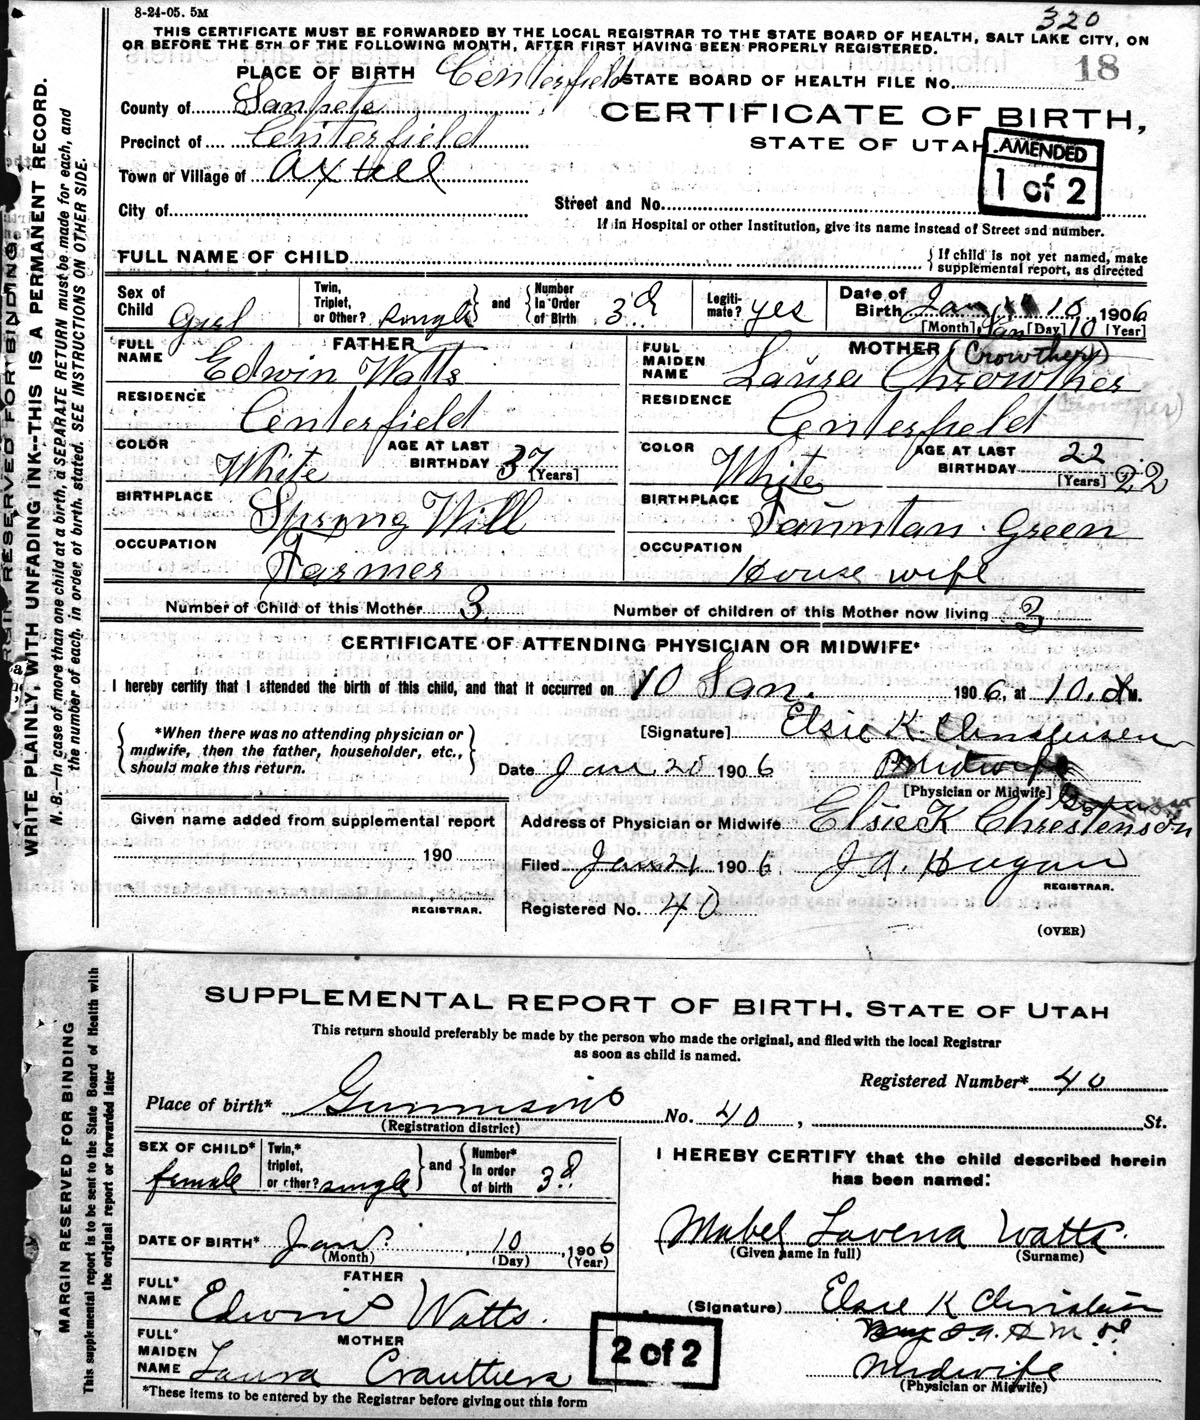 8-24-05. 5M
320
THIS CERTIFICATE MUST BE FORWARDED BY THE LOCAL REGISTRAR TO THE STATE BOARD OF HEALTH, SALT LAKE CITY, ON
OR BEFORE THE 5TH OF THE FOLLOWING MONTH, AFTER FIRST HAVING BEEN PROPERLY REGISTERED.
PLACE OF BIRTH Centerfield STATE BOARD OF HEALTH FILE NO. 18
County of Sanpete
CERTIFICATE OF BIRTH,
Precinct of Centerfield
STATE OF UTAH
AMENDED
1 of 2
Town or Village of Axtell
City of
Street and No.
If in Hospital or other Institution, give its name instead of Street and number.
FULL NAME OF CHILD
{ If child is not yet named, make
supplemental report, as directed
Sex of Child Girl
Twin, Triplet, or Other? single } and { Number In Order of Birth 3d
Legiti-mate? yes
Date of Birth Jan 10 1906
[Month] Jan [Day] 10 [Year]
FATHER
FULL NAME Edwin Watts
MOTHER (Crowther)
FULL MAIDEN NAME Laura Chrowther
RESIDENCE Centerfield
RESIDENCE Centerfield
(Crowther)
COLOR White AGE AT LAST BIRTHDAY 37 [Years]
COLOR White AGE AT LAST BIRTHDAY 22 [Years] 22
BIRTHPLACE Spring Will
BIRTHPLACE Fauntan Green
OCCUPATION Farmer
OCCUPATION House wife
Number of Child of this Mother 3. Number of children of this Mother now living 3
CERTIFICATE OF ATTENDING PHYSICIAN OR MIDWIFE*
I hereby certify that I attended the birth of this child, and that it occurred on 10 Jan. 1906, at 10. M.
{ *When there was no attending physician or
midwife, then the father, householder, etc.,
should make this return. }
[Signature] Elsie K. Christensen
Date Jan. 20 1906 Midwife
[Physician or Midwife]
Given name added from supplemental report
190
REGISTRAR.
Address of Physician or Midwife Elsie K Chrestenson
Filed Jan 21 1906 J A. Hagan
REGISTRAR.
Registered No. 40
(OVER)
MARGIN RESERVED FOR BINDING
WRITE PLAINLY, WITH UNFADING INK--THIS IS A PERMANENT RECORD.
N. B.—In case of more than one child at a birth, a SEPARATE RETURN must be made for each, and
the number of each, in order of birth, stated. SEE INSTRUCTIONS ON OTHER SIDE.
SUPPLEMENTAL REPORT OF BIRTH, STATE OF UTAH
This return should preferably be made by the person who made the original, and filed with the local Registrar
as soon as child is named.
Registered Number* 40
Place of birth* Gunnison No. 40, St.
(Registration district)
SEX OF CHILD* female
Twin,* triplet, or other? single } and { Number* In order of birth 3d
I HEREBY CERTIFY that the child described herein
has been named:
DATE OF BIRTH* Jan. 10, 1906
(Month) (Day) (Year)
Mabel Lavena Watts.
(Given name in full) (Surname)
FATHER
FULL* NAME Edwin Watts.
(Signature) Elsie K Christensen
MOTHER
FULL* MAIDEN NAME Laura
2 of 2
Midwife
(Physician or Midwife)
*These items to be entered by the Registrar before giving out this form
MARGIN RESERVED FOR BINDING
This supplemental report is to be sent to the State Board of Health with
the original report or forwarded later